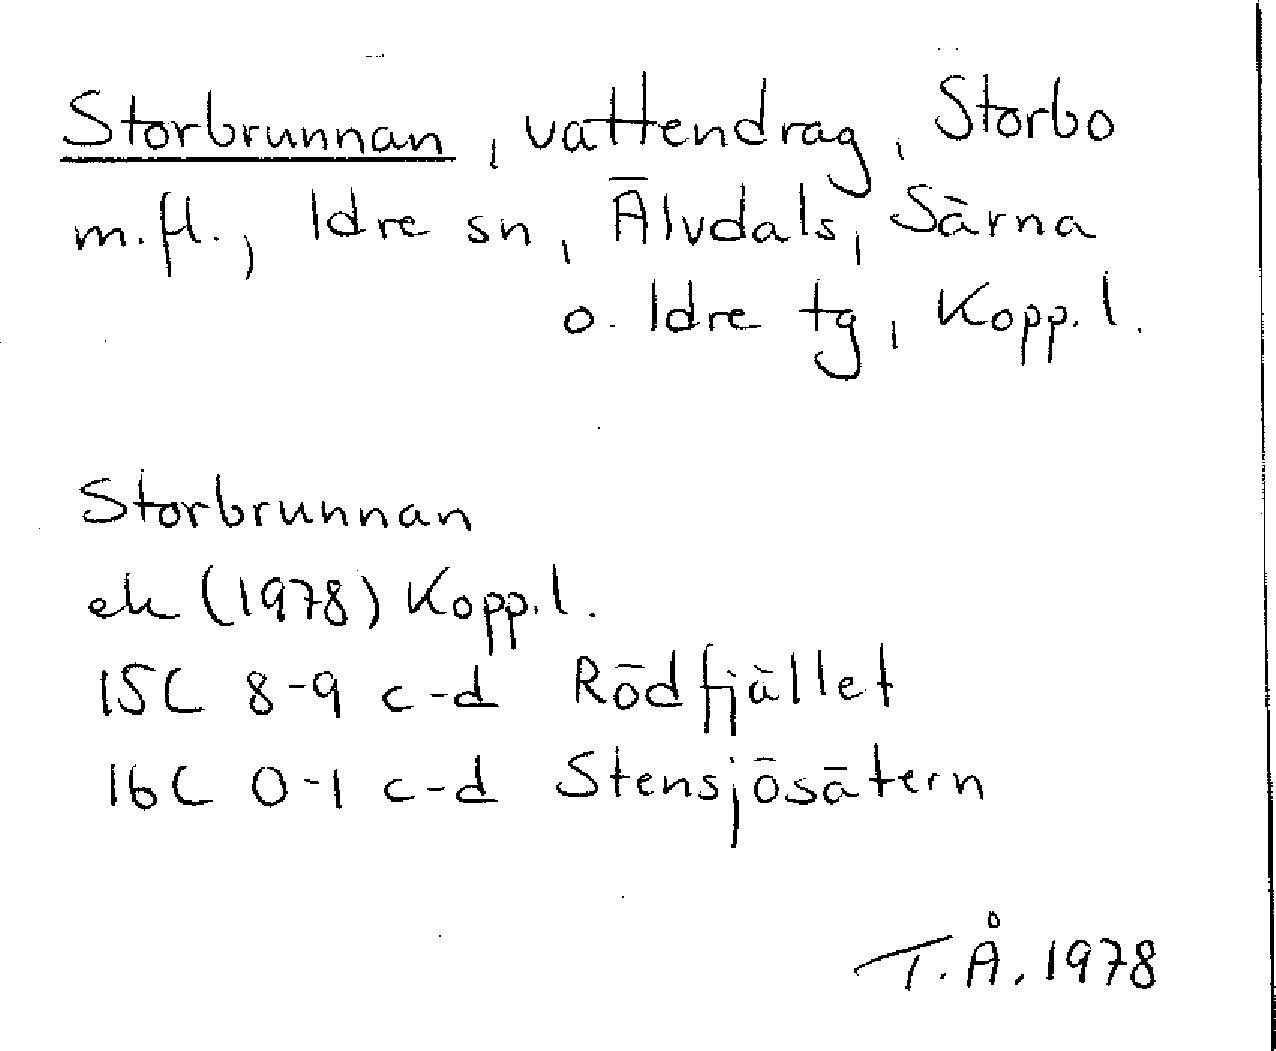 Storbrunnan, vattendrag, Storbo
m.fl., Idre sn, Älvdals, Särna
o. Idre tg, Kopp. l.
Storbrunnan
ek (1978) Kopp. l.
15C 8-9 c-d Rödfjället
16C 0-1 c-d Stensjösätern
T.Å. 1978